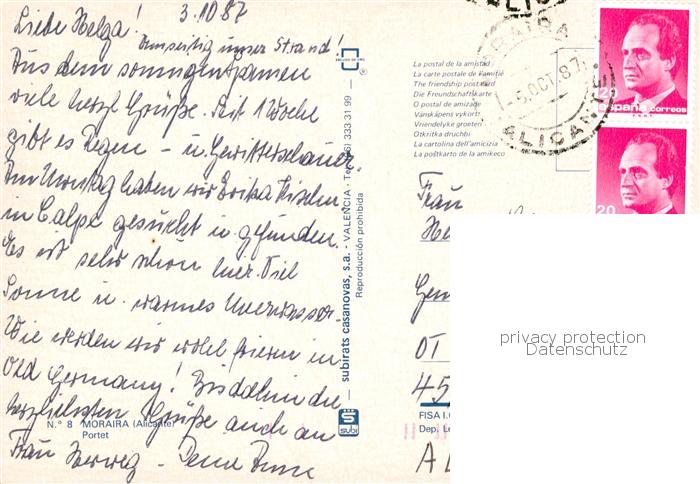 3.10.87
Liebe Helga!
Umseitig unser Strand!
Aus dem sonnigen Spanien
viele herzl Grüße. Seit 1 Woche
gibt es Regen - u. Gewitterschauer.
Am Montag haben wir Erika
in Calpe gesucht u. gefunden.
Es ist sehr schön hier. Viel
Sonne u. warmes
Wie werden wir wohl frieren in
Old Germany! Bis dahin die
herzliebsten Grüße auch an
Frau Herweg - Deine
N.º 8 MORAIRA (Alicante)
Portet
subirats casanovas, s.a. - VALENCIA - Tel. (96) 333 31 99 - ®
Reproducción prohibida
subi
La postal de la amistad
La carte postale de l'amitié
The friendship postcard
Die Freundschaftskarte
O postal de amizade
Vänskäpens vykort
Vriendelyke groeten
Otkritka druchbi
La cartolina dell'amicizia
La poŝtkarto de la amikeco
MORAIRA
-5.OCT.87
ALICANTE
20
españa correos
F.N.M.T.
20
Frau
He
Gen
OT
45
FISA I.G
Dep. Le
A
privacy protection
Datenschutz